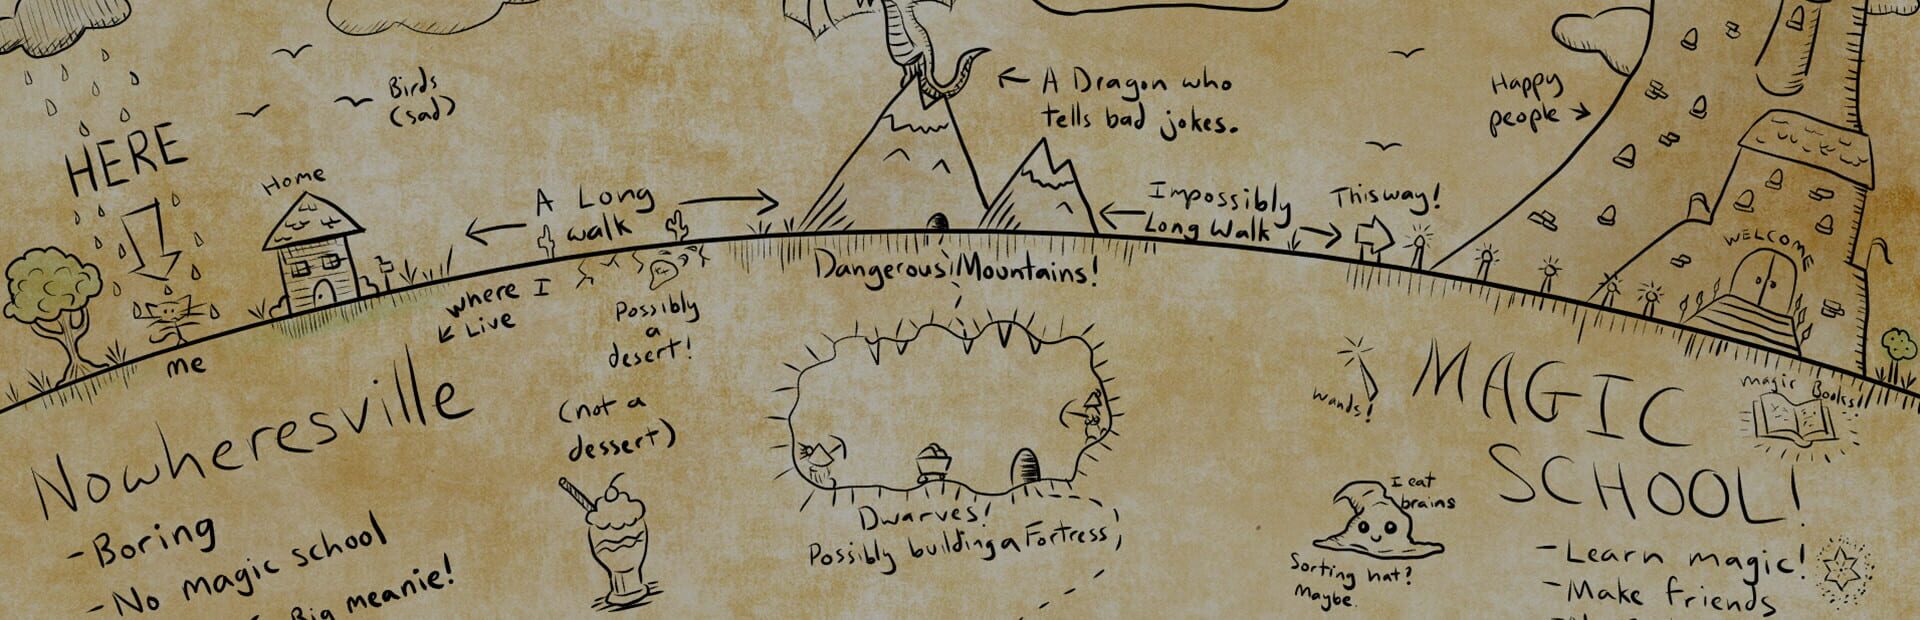 HERE
Home
Birds
(sad)
A Long
walk
A Dragon who
tells bad jokes.
Impossibly
Long Walk
This way!
Happy
people
WELCOME
me
where I
Live
Possibly
a
desert!
(not a
dessert)
Dangerous Mountains!
Dwarves!
Possibly building a Fortress
Nowheresville
-Boring
-No magic school
Big meanie!
wands!
MAGIC
SCHOOL!
magic Books!
I eat
brains
Sorting hat?
Maybe.
-Learn magic!
-Make friends